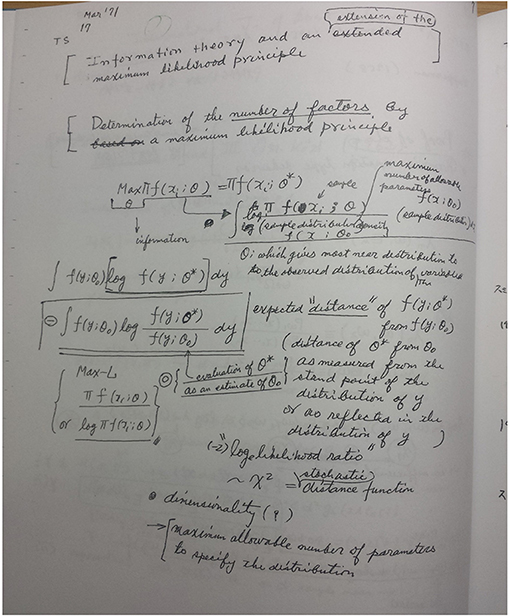 Mar '71
17
TS
extension of the
Information theory and an extended
maximum likelihood principle
Determination of the number of factors by
based on a maximum likelihood principle
Max π f(x_i; θ) = π f(x_i; θ*)
θ
sample
maximum
number of allowable
parameters
f(x_i; θ_0)
information
log π f(x_i; θ)
log (sample distribution density
f(x_i; θ_0)
(sample distribution)
θ; which gives most near distribution to
to the observed distribution of variables
∫ f(y; θ_0) [log f(y; θ*)] dy
⊖ ∫ f(y; θ_0) log f(y; θ*) / f(y; θ_0) dy
expected "distance" of f(y; θ*)
from f(y; θ_0)
evaluation of θ*
as an estimate of θ_0
(distance of θ* from θ_0
as measured from the
stand point of the
distribution of y
or as reflected in the
distribution of y )
Max-L
π f(x_i; θ)
or log π f(x_i; θ)
(-2) "log likelihood ratio"
~ χ² = stochastic
distance function
• dimensionality (?)
→ [maximum allowable number of parameters
to specify the distribution